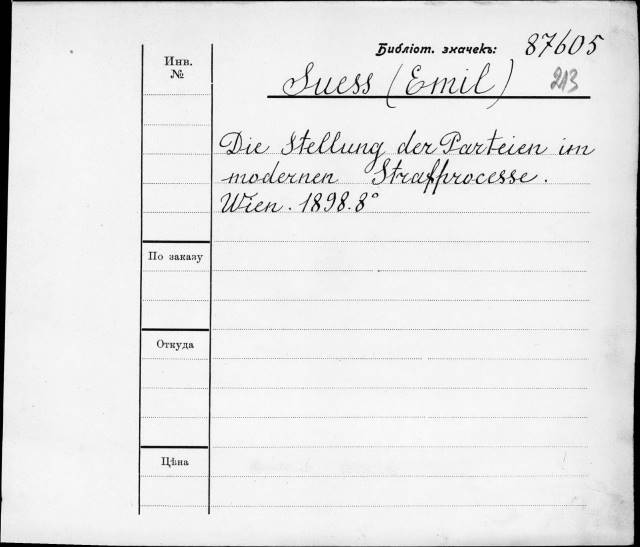 Библіот. значекъ: 87605
Инв.
№
Suess (Emil) 213
Die Stellung der Parteien im
modernen Strafprocesse.
Wien. 1898. 8°
По заказу
Откуда
Цѣна